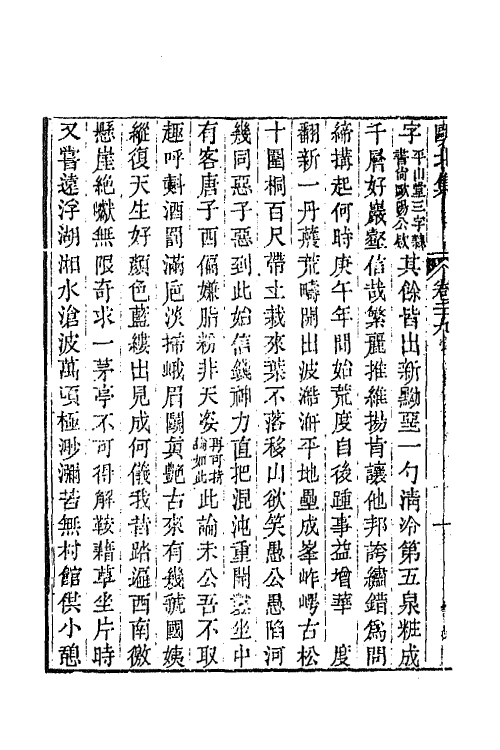 甌北集 卷三十九 十
字平山堂三字猶舊尚歐陽公款其餘皆出新黝堊一勺清冷第五泉粧成
千層好巖壑信哉繁麗推維揚肯讓他邦誇繡錯為問
締搆起何時庚午年間始荒度自後踵事益增華度
翻新一丹雘荒疇開出波浩漭平地壘成峯岞崿古松
十圍桐百尺帶土栽來葉不落移山欲笑愚公愚陷河
幾同惡子惡到此始信錢神力直把混沌重開鑿坐中
有客唐子西偏嫌脂粉非天姿再可持論如此此論未公吾不取
趣呼𣂏酒罰滿卮淡掃蛾眉鬬真艷古來有幾虢國姨
縱復天生好顏色藍縷出見成何儀我昔踏遍西南徼
懸崖絕巘無限奇求一茅亭不可得解鞍藉草坐片時
又嘗遠浮湖湘水滄波萬頃極渺瀰苦無村館供小憩